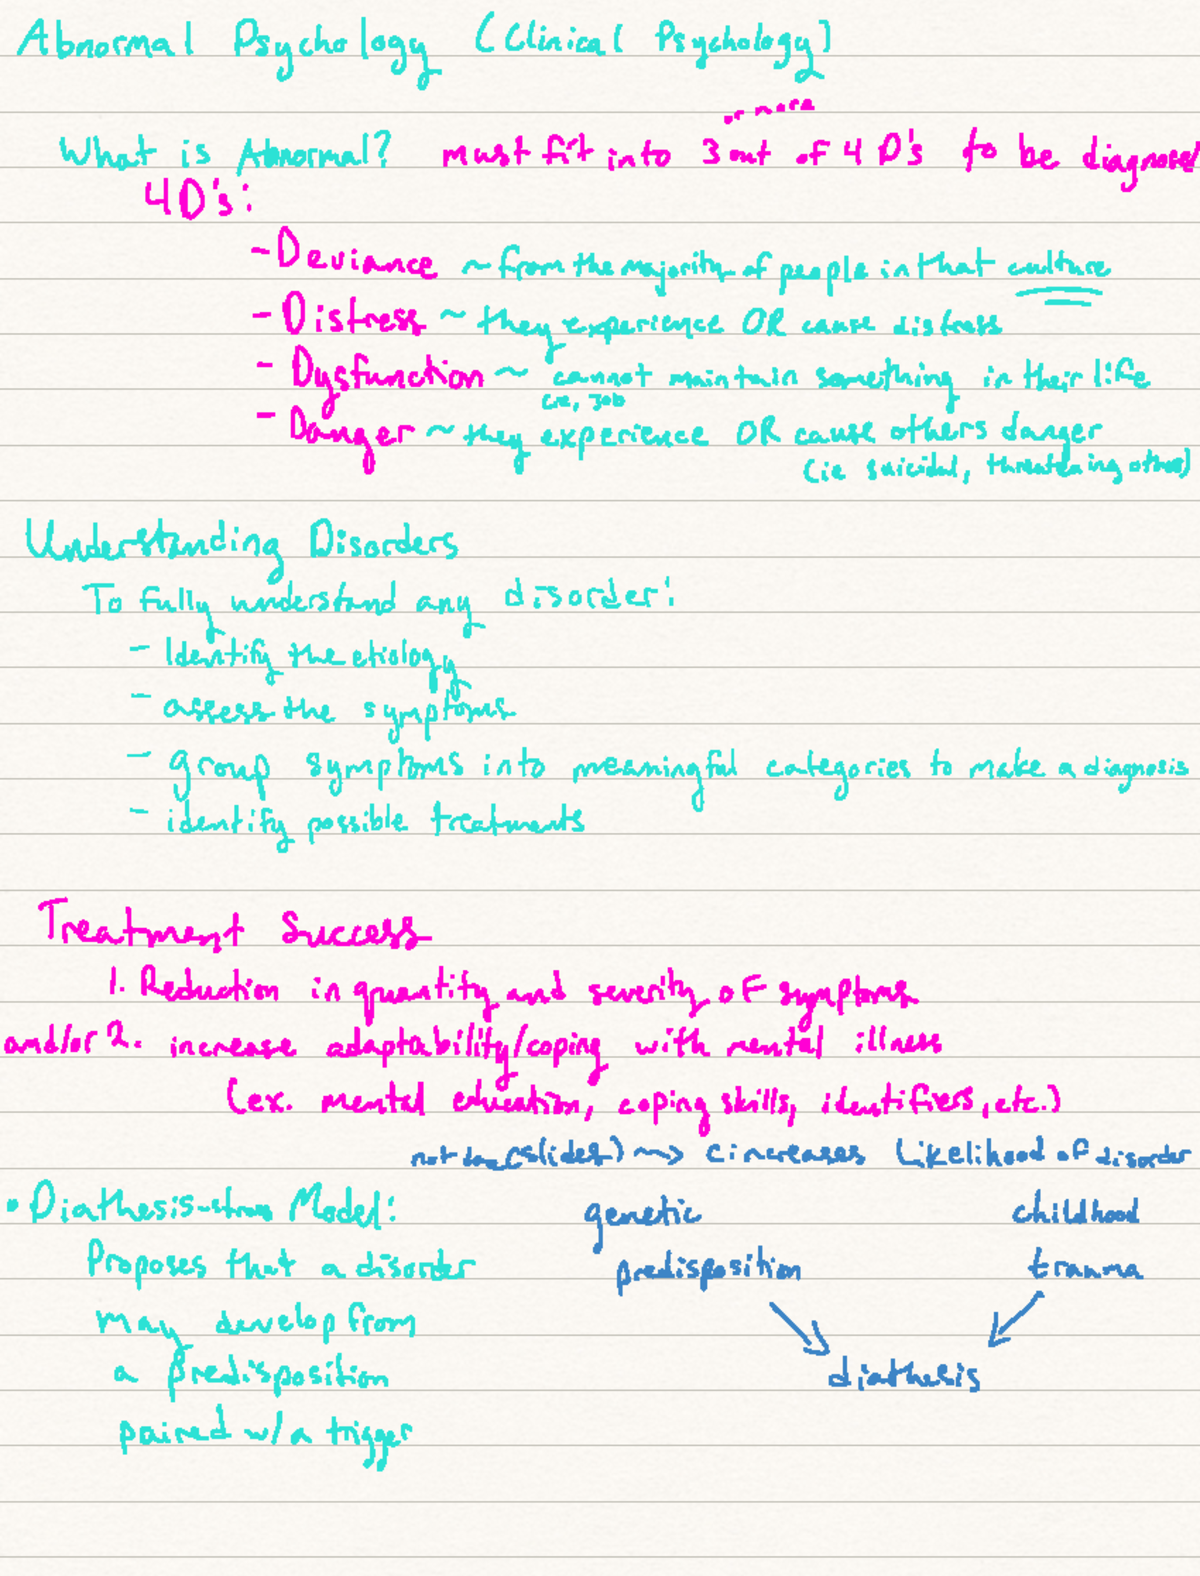 Abnormal Psychology (Clinical Psychology)
or more
What is Abnormal? must fit into 3 out of 4 D's to be diagnosed
4D's:
- Deviance ~ from the majority of people in that culture
- Distress ~ they experience OR cause distress
- Dysfunction ~ cannot maintain something in their life
(ie, job
- Danger ~ they experience OR cause others danger
(ie suicidal, threatening others)
Understanding Disorders
To fully understand any disorder:
- Identify the etiology
- assess the symptoms
- group symptoms into meaningful categories to make a diagnosis
- identify possible treatments
Treatment Success
1. Reduction in quantity and severity of symptoms
and/or 2. increase adaptability/coping with mental illness
(ex. mental education, coping skills, identifiers, etc.)
not (slides) ~> increases likelihood of disorder
• Diathesis-stress Model:
Proposes that a disorder
may develop from
a predisposition
paired w/ a trigger
genetic
predisposition
childhood
trauma
diathesis